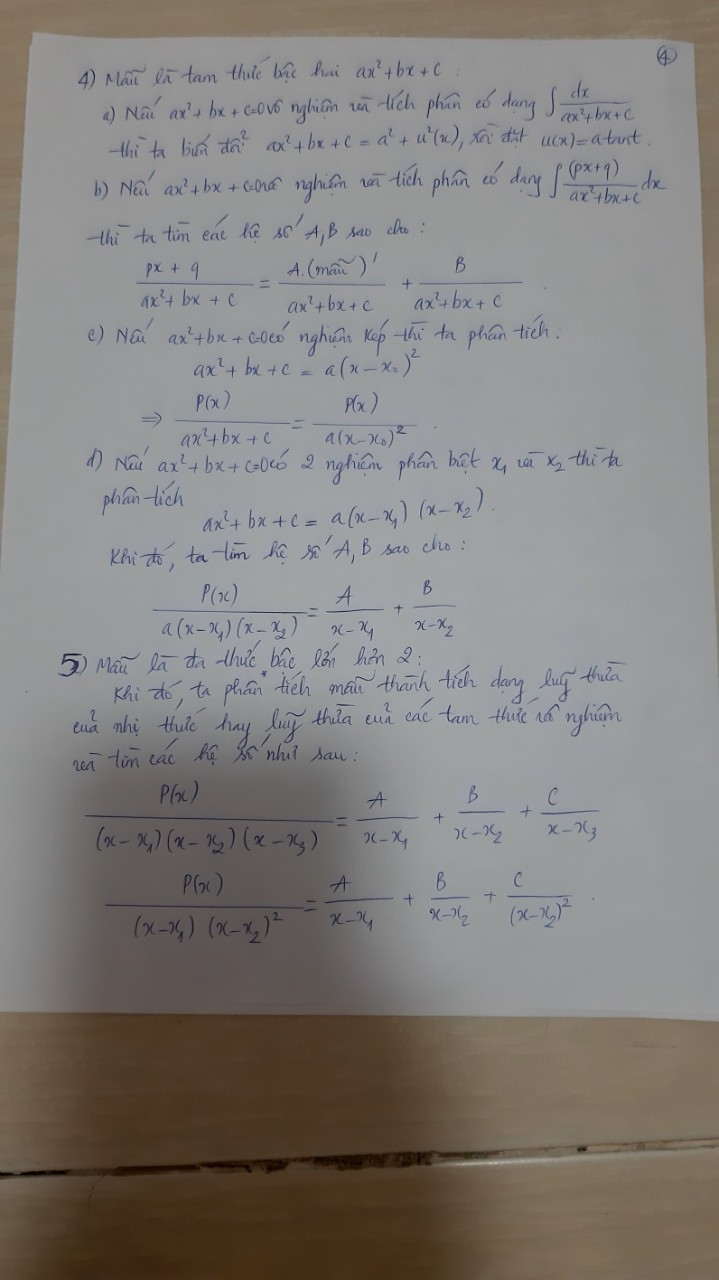 ④
4) Mẫu là tam thức bậc hai ax²+bx+c :
a) Nếu ax²+bx+c=0 vô nghiệm và tích phân có dạng ∫ dx/(ax²+bx+c)
thì ta biến đổi ax²+bx+c = a²+u²(x), rồi đặt u(x)=a tant.
b) Nếu ax²+bx+c=0 vô nghiệm và tích phân có dạng ∫ (px+q)/(ax²+bx+c) dx
thì ta tìm các hệ số A,B sao cho :
(px+q)/(ax²+bx+c) = A.(mẫu)'/(ax²+bx+c) + B/(ax²+bx+c) .
c) Nếu ax²+bx+c=0 có nghiệm kép thì ta phân tích :
ax²+bx+c = a(x-x₀)²
⇒ P(x)/(ax²+bx+c) = P(x)/(a(x-x₀)²) .
d) Nếu ax²+bx+c=0 có 2 nghiệm phân biệt x₁ và x₂ thì ta
phân tích
ax²+bx+c = a(x-x₁)(x-x₂).
Khi đó, ta tìm hệ số A,B sao cho :
P(x)/(a(x-x₁)(x-x₂)) = A/(x-x₁) + B/(x-x₂)
5) Mẫu là đa thức bậc lớn hơn 2 :
Khi đó, ta phân tích mẫu thành tích dạng luỹ thừa
của nhị thức hay luỹ thừa của các tam thức vô nghiệm
và tìm các hệ số như sau :
P(x)/((x-x₁)(x-x₂)(x-x₃)) = A/(x-x₁) + B/(x-x₂) + C/(x-x₃)
P(x)/((x-x₁)(x-x₂)²) = A/(x-x₁) + B/(x-x₂) + C/(x-x₂)² .